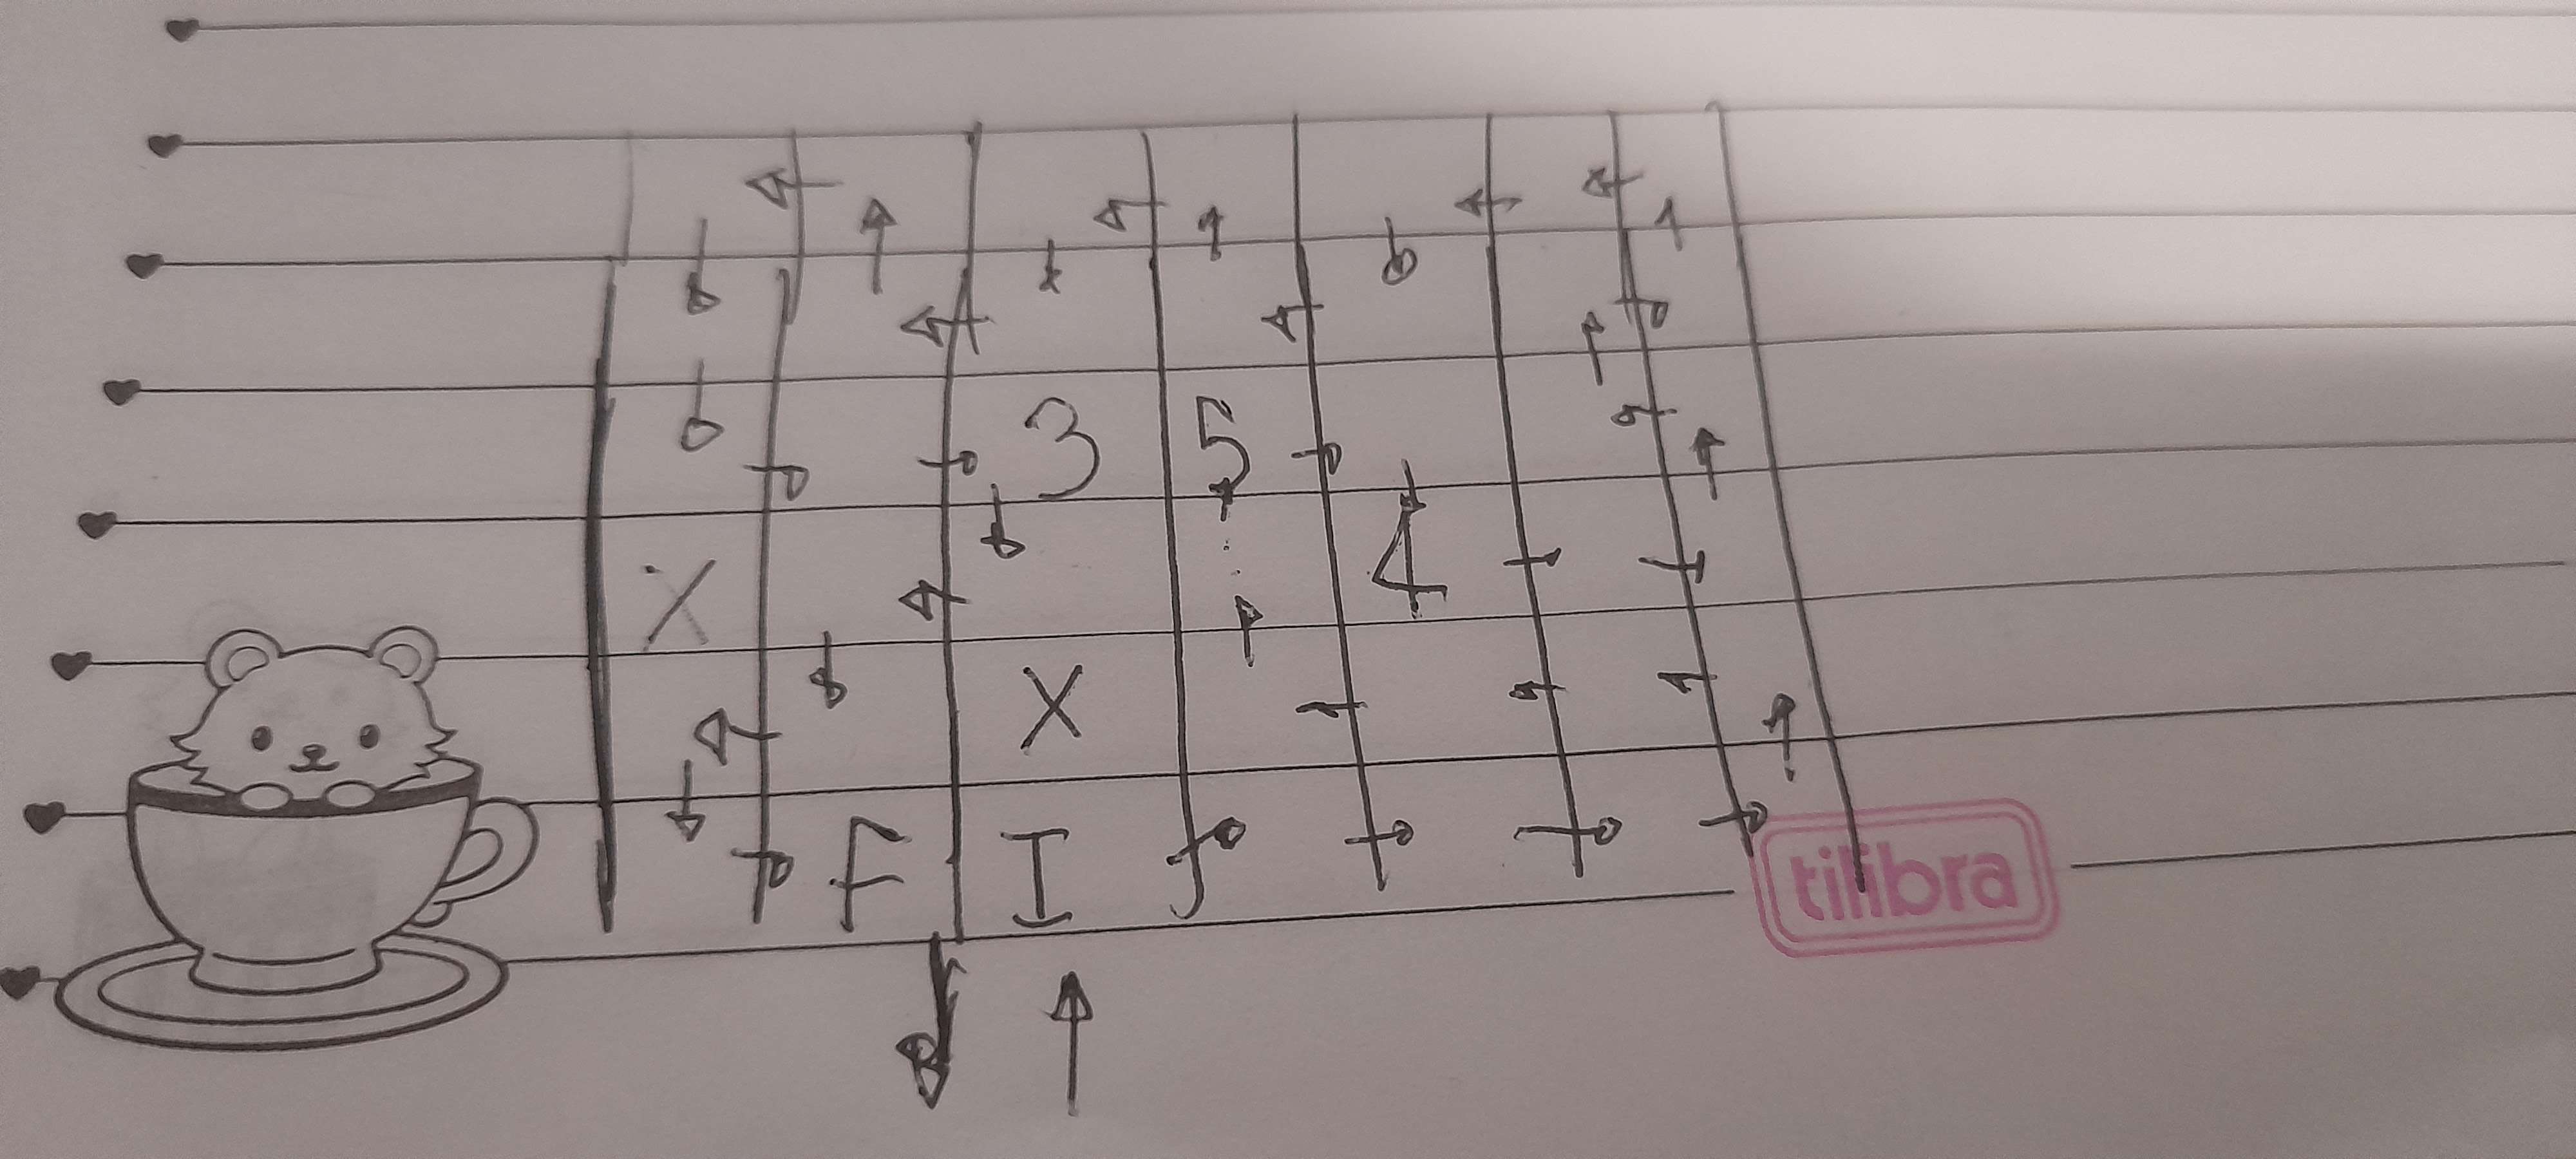 3 5
X 4
X
F I
tilibra